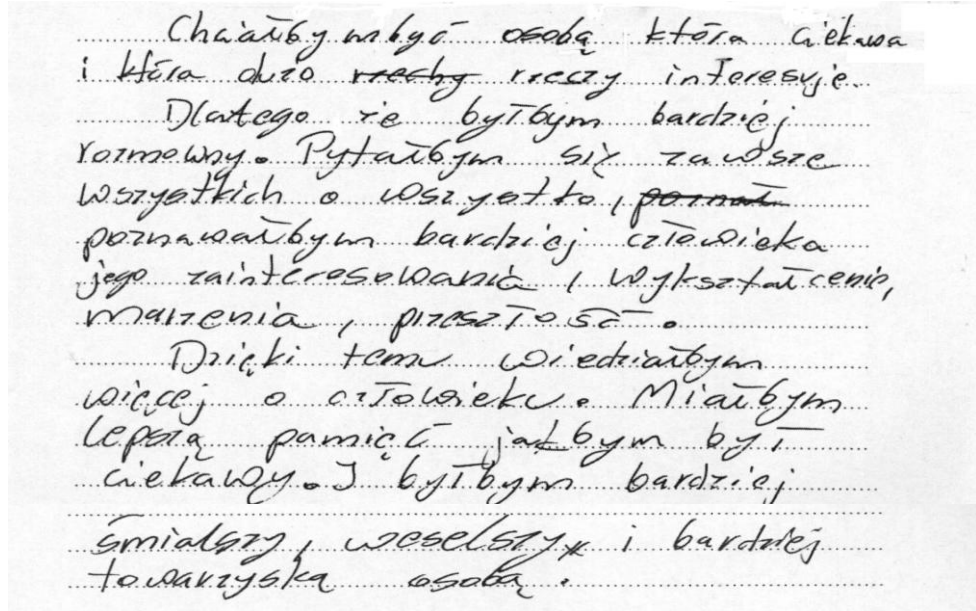 Chciałbym być osobą która ciekawa
i która dużo rzechy rzeczy interesuje.
Dlatego że byłbym bardziej
rozmowny. Pytałbym się zawsze
wszystkich o wszystko, poznał
poznawałbym bardziej człowieka
jego zainteresowania, wykształcenie,
marzenia, przeszłość.
Dzięki temu wiedziałbym
więcej o człowieku. Miałbym
lepszą pamięć jakbym był
ciekawy. I byłbym bardziej
śmialszy, weselszy i bardziej
towarzyską osobą.